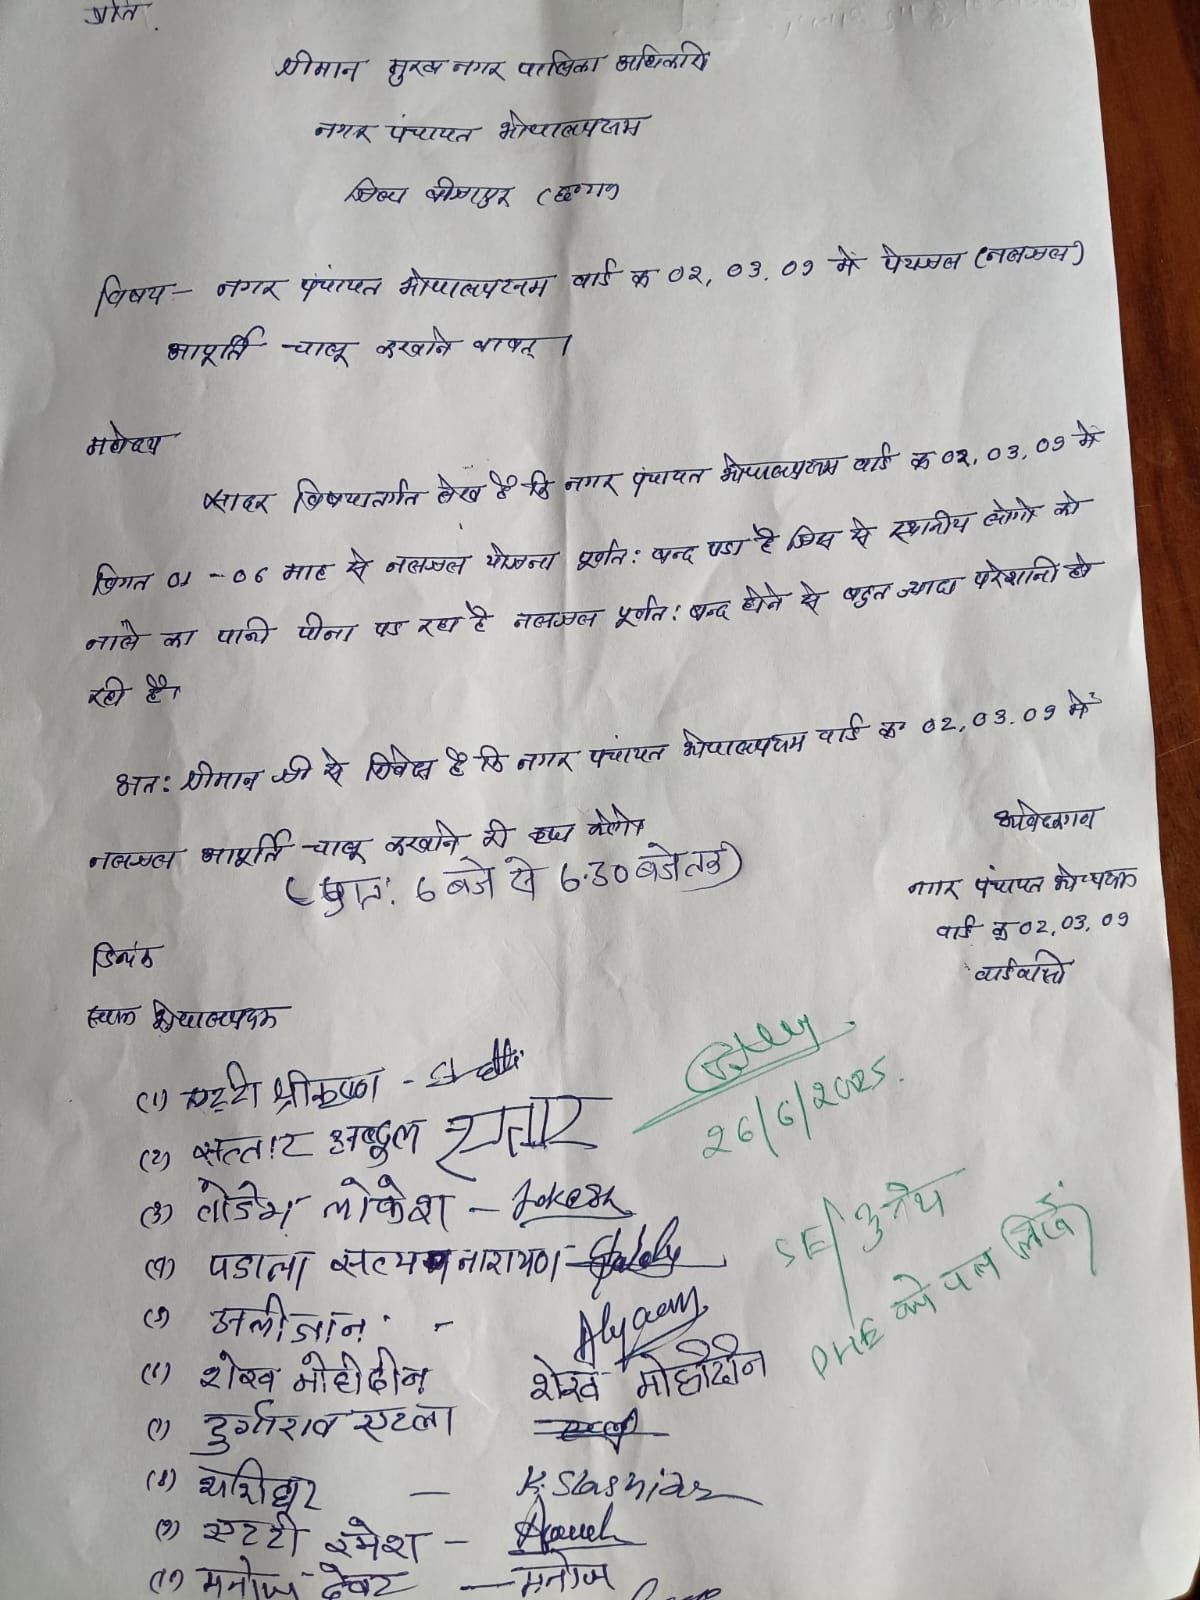 प्रति,
श्रीमान मुख्य नगर पालिका अधिकारी
नगर पंचायत भोपालपटनम
जिला बीजापुर (छ०ग०)
विषय - नगर पंचायत भोपालपटनम वार्ड क्र 02, 03, 09 में पेयजल (नलजल)
आपूर्ति चालू करवाने बाबत् ।
महोदय
सादर विषयांतर्गत लेख है कि नगर पंचायत भोपालपटनम वार्ड क्र 02, 03, 09 में
विगत 01 - 06 माह से नलजल योजना पूर्णत: बन्द पडा है जिस से स्थानीय लोगो को
नाले का पानी पीना पड रहा है नलजल पूर्णत: बन्द होने से बहुत ज्यादा परेशानी हो
रही है।
अत: श्रीमान जी से निवेदन है कि नगर पंचायत भोपालपटनम वार्ड क्र 02, 03, 09 में
नलजल आपूर्ति चालू करवाने की कृपा करेंगे।
(प्रात: 6 बजे से 6.30 बजे तक)
आवेदकगण
नगर पंचायत
वार्ड क्र 02, 03, 09
वार्डवासी
दिनांक
स्थान भोपालपटनम
(1) एट्टी श्रीकृष्णा -
(2) सत्तार अब्दुल सत्तार
(3) लोकेश - Lokesh
(4) पडाला सत्यनारायण -
(5) अलीजान -
(6) शेख मोहीदीन शेख मोहीदीन
(7) दुर्गाराव
(8) शशिधर - K. Shashidhar
(9) एट्टी रमेश -
(10) मनोज - मनोज
26/6/2025.
SE/
PHE को पत्र लिखें